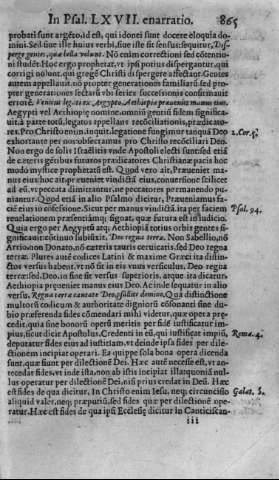 In Psal. LXVII. enarratio. 865
probati sunt argēto.id est, qui idonei sunt docere eloquia do-
mini. Sed siue ille huius verbi, siue iste sit sensus: sequitur, Dis-
perge gentes, quæ bella volunt. Nō enim correctioni sed cōtentio-
ni studēt. Hoc ergo prophetat, vt ipsi potius dispergantur, qui
corrigi nolunt, qui gregē Christi dispergere affectāt. Gentes
autem appellauit, nō propter generationes familiarū sed pro-
pter generationes sectarū vbi series successionis confirmauit
errorē. Venient legati ex Aegypto, Aethiopia præueniet manus eius.
Aegypti vel Aethiopiæ nomine, omniū gentiū fidem significa-
uit, à parte totū, legatos appellans recōciliationis, prædicato-
res. Pro Christo enim, inquit, legatione fungimur tanquā Deo 2.Cor.5.
exhortante per nos obsecramus pro Christo recōciliari Deo.
Non ergo de solis Israelitis vnde Apostoli electi sunt sed etiā
de cæteris gētibus futuros prædicatores Christianæ pacis hoc
modo mysticè prophetatū est. Quod verò ait, Præueniet ma-
nus eius hoc ait, præueniet vindictā eius, conuersione scilicet
ad eū, vt peccata dimittantur, ne peccatores permanendo pu-
niantur. Quod etiā in alio Psalmo dicitur, Præueniamus fa-
ciē eius in cōfessione. Sicut per manus vindictā, ita per faciem Psal. 94.
reuelationem præsentiāq; signat, quæ futura est in iudicio.
Quia ergo per Aegyptū atq; Aethiopiā totius orbis gentes si-
gnificauit: cōtinuò subiecit. Deo regna terræ. Non Sabellio, nō
Arrio, non Donato, nō cæteris tauris ceruicatis, sed Deo regna
terræ. Plures autē codices Latini & maxime Græci ita distin-
ctos versus habent, vt nō sit in eis vnus versiculus, Deo regna
terræ: sed, Deo, in fine sit versus superioris, atque ita dicatur,
Aethiopia præueniet manus eius Deo. Ac inde sequatur in alio
versu. Regna terræ cantate Deo, psallite domino. Qua distinctione
multorū codicum & authoritate digniorū cōsonanti sine du-
bio præferenda fides cōmendari mihi videtur, quæ opera præ-
cedit, quia sine bonorū operū meritis per fidē iustificatur im-
pius, sicut dicit Apostolus. Credenti in eū, qui iustificat impiū, Roma.4.
deputatur fides eius ad iustitiam, vt deinde ipsa fides per dile-
ctionem incipiat operari. Ea quippe sola bona opera dicenda
sunt, quæ fiunt per dilectionē Dei. Hæc autē necesse est, vt an-
tecedat fides, vt inde ista, non ab istis incipiat illa, quoniā nul-
lus operatur per dilectionē Dei, nisi prius credat in Deū. Hæc
est fides de qua dicitur, In Christo enim Iesu, neq; circuncisio Galat. 5.
aliquid valet, neq; præputiū, sed fides quæ per dilectionē ope-
ratur. Hæc est fides de qua ipsi Ecclesiæ dicitur in Canticis can-
iii